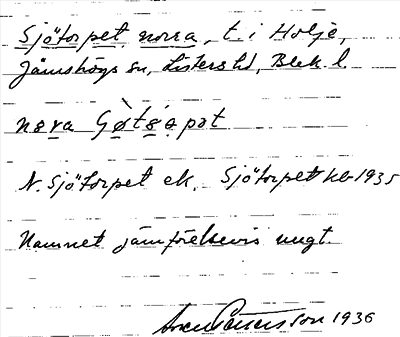 Sjötorpet norra, t. i Holje,
Jämshögs sn, Listers hd, Blek. l.
nǫra Gøtsǝpət
N. Sjötorpet ek. Sjötorpet kb 1935
Namnet jämförelsevis ungt.
1936